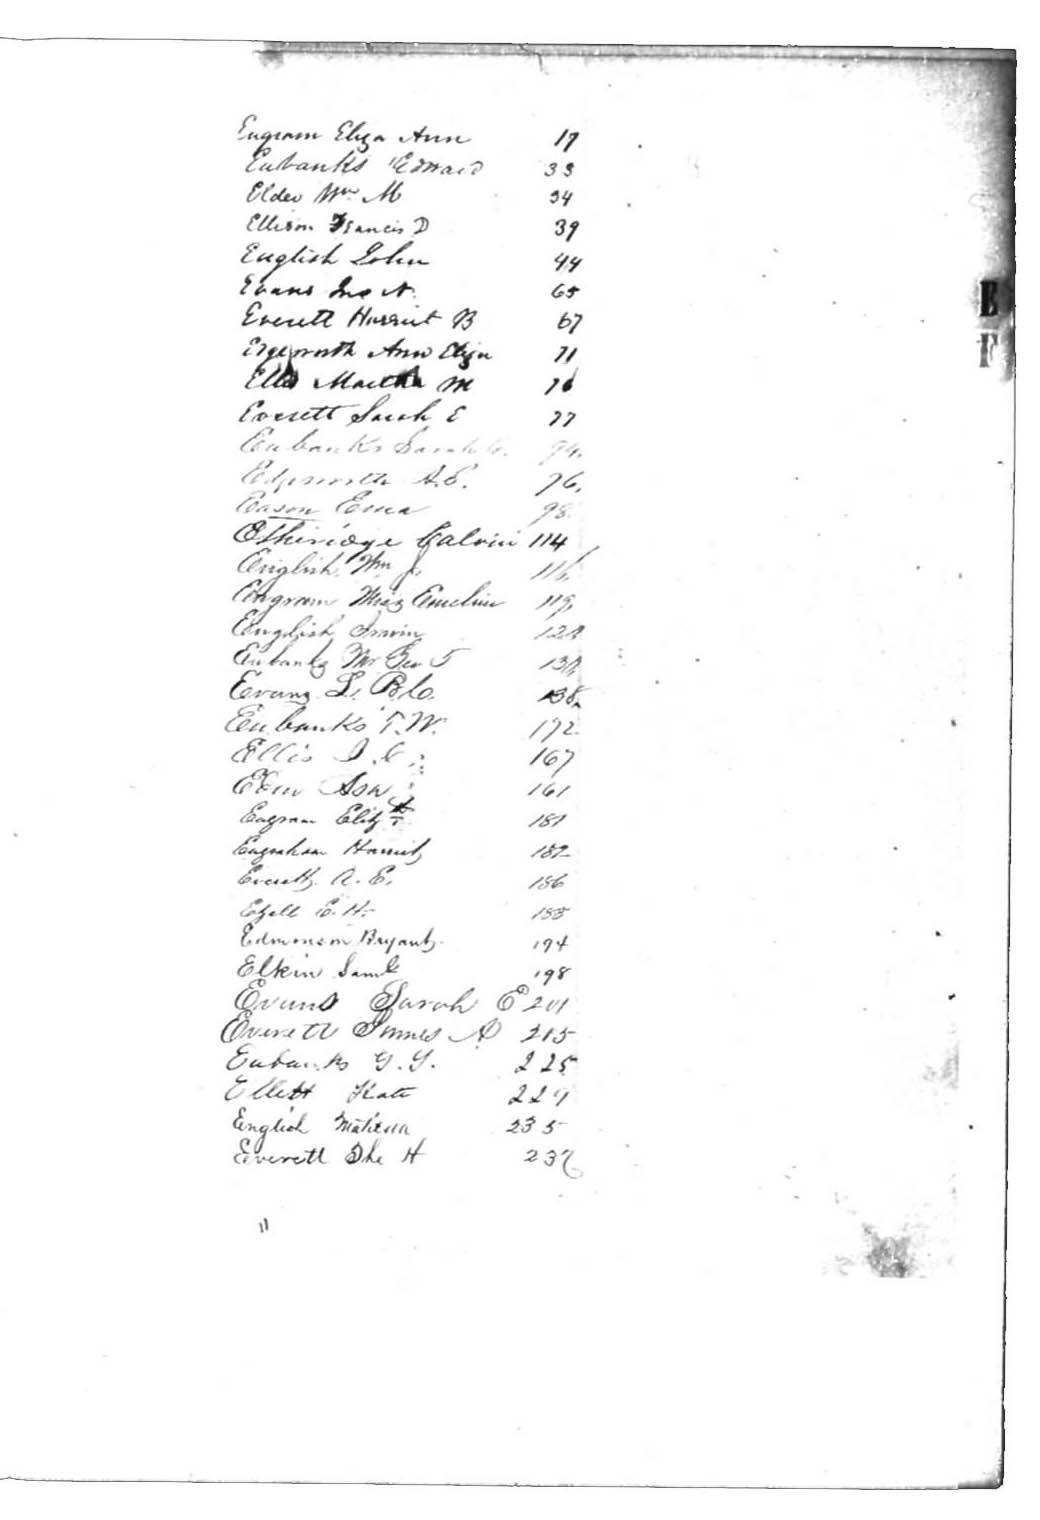 Engram Eliza Ann 17
Eubanks Edward 33
Elder Wm M 34
Ellison Francis D 39
English John 44
Evans Jno N. 65
Everett Harriet B 67
Edgeworth Ann Eliza 71
Ellis Martha M 76
Everett Sarah E 77
Eubanks Sarah 94.
Edgeworth A.E. 96.
Eason Erma 98.
Etheridge Calvin 114
English Wm J. 116.
Engram Miss Emeline 119.
English Irwin
Eubanks Mr Geo T
Evans L. 138.
Eubanks T.W. 172
Ellis J. C. 167
Asa 161
Engram Eliz 181
Engraham Harriet 182
Everett A. E. 186
Ezell E. H. 188
Edmonson Bryant 194
Elkin Saml 198
Evans Sarah E 201
Everett James A 215
Eubanks G. Y. 225
Ellett Kate 229
English Matilda 235
Everett H 237
11
E
F